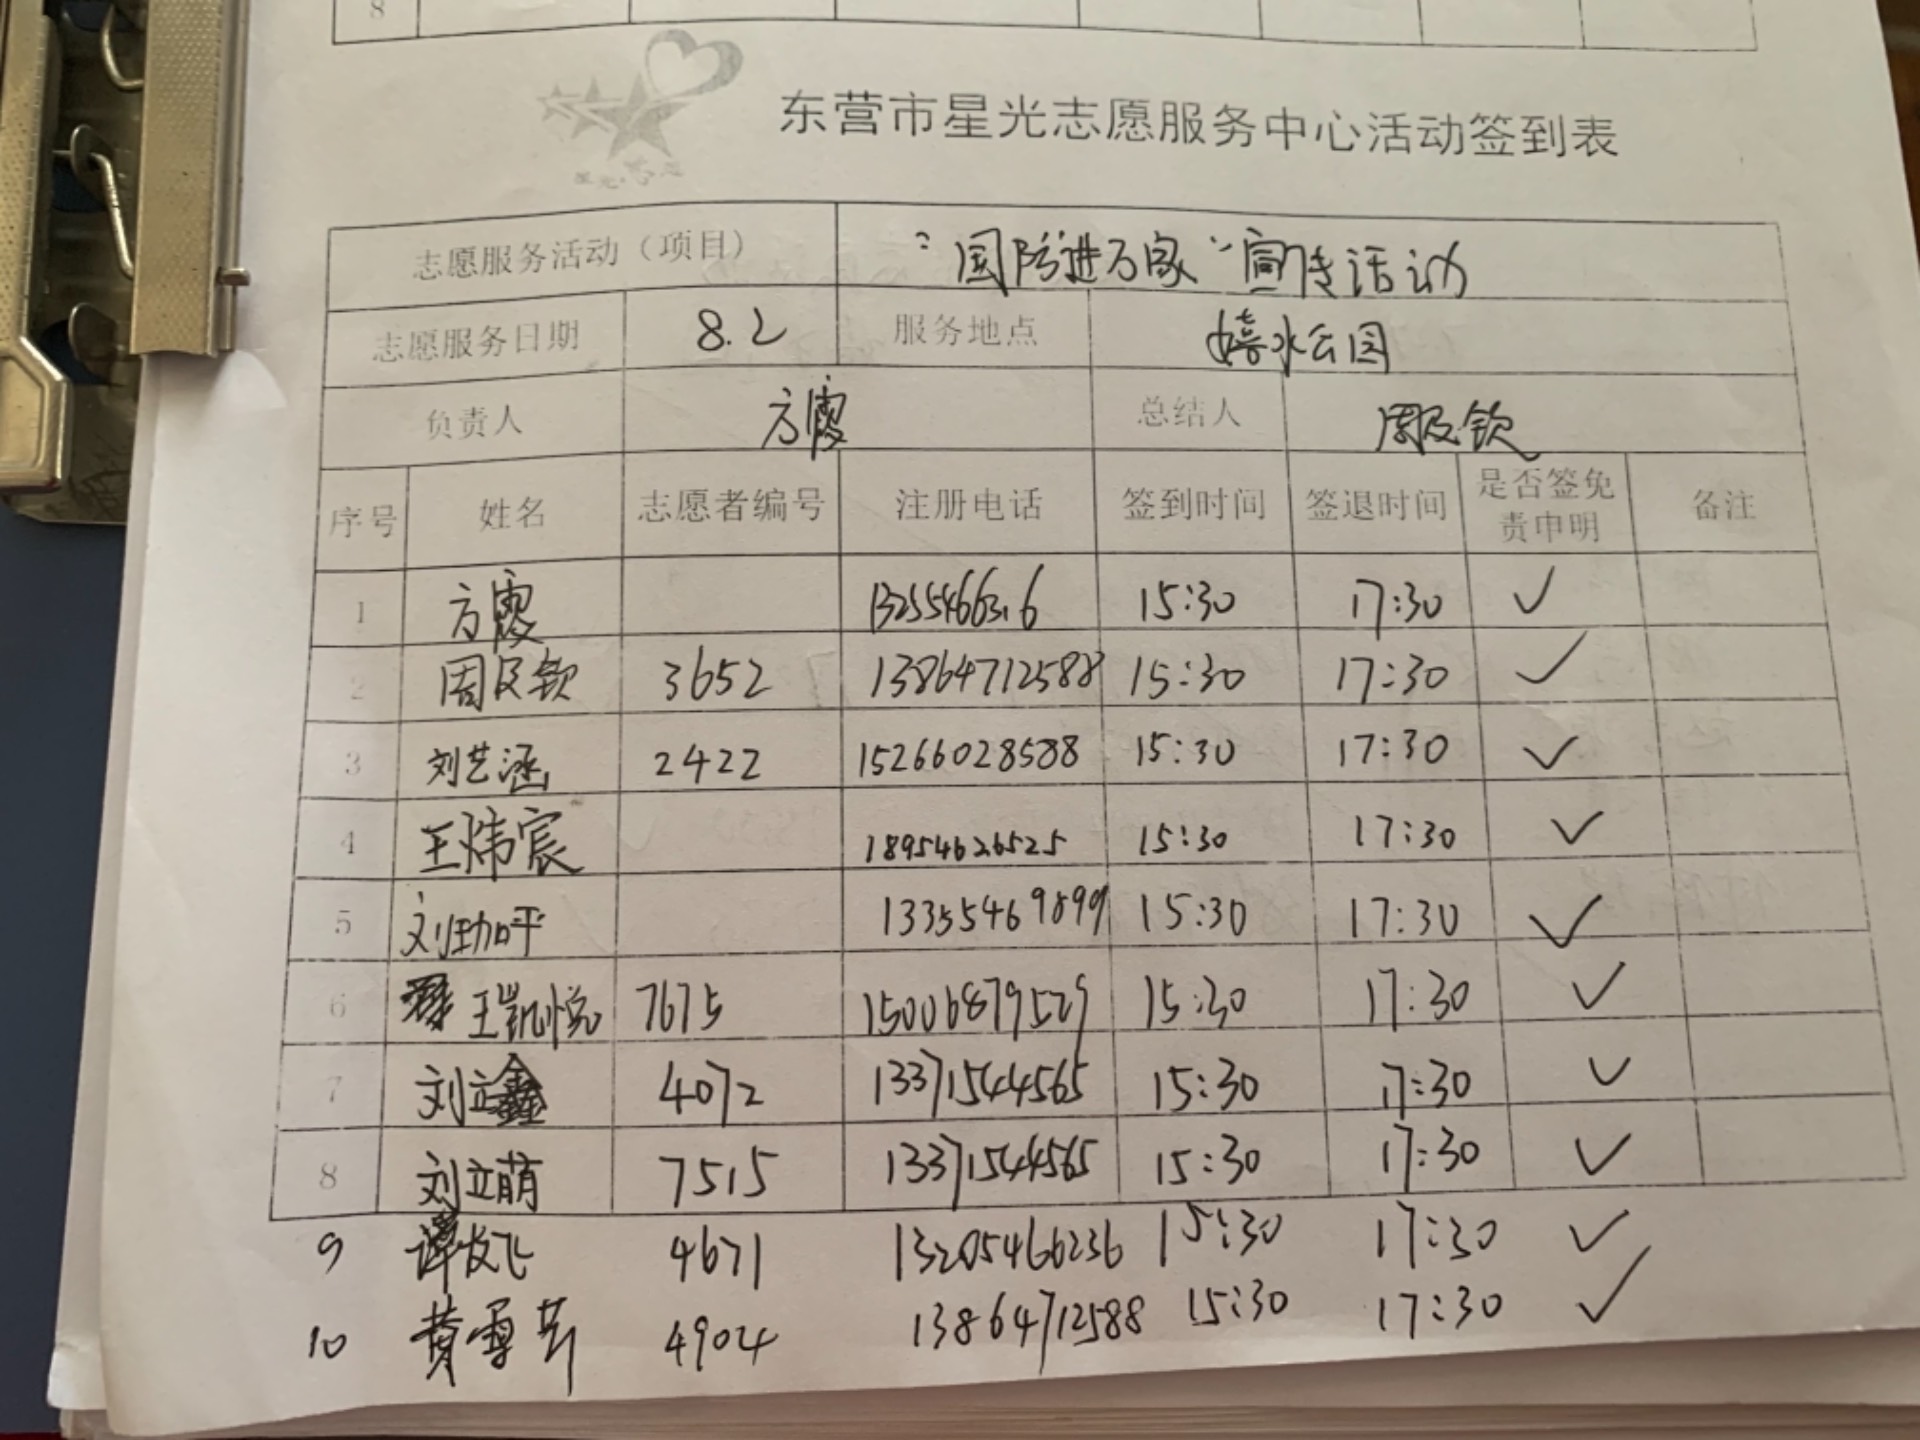 8
东营市星光志愿服务中心活动签到表
志愿服务活动（项目） “国防进万家”宣传活动
志愿服务日期 8.2 服务地点 嬉水公园
负责人 方霞 总结人 周及钦
序号 姓名 志愿者编号 注册电话 签到时间 签退时间 是否签免责申明 备注
1 方霞 15:30 17:30 ✓
2 周及钦 3652 13864712588 15:30 17:30 ✓
3 刘艺涵 2422 15266028588 15:30 17:30 ✓
4 王炜宸 18954626525 15:30 17:30 ✓
5 13355469899 15:30 17:30 ✓
6 王凯悦 7675 15006879529 15:30 17:30 ✓
7 刘立鑫 4072 13371544565 15:30 17:30 ✓
8 刘立萌 7515 13371544565 15:30 17:30 ✓
9 4671 13205466236 15:30 17:30 ✓
10 4904 13864712588 15:30 17:30 ✓